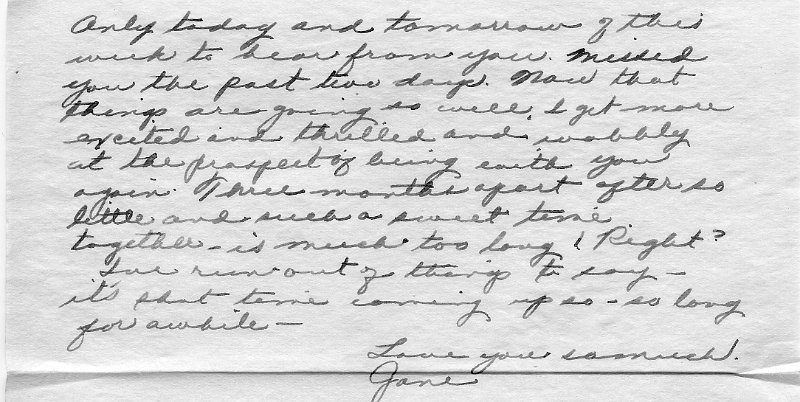 Only today and tomorrow of this
week to hear from you. Missed
you the past two days. Now that
things are going so well, I get more
excited and thrilled and wobbly
at the prospect of being with you
again. Three months apart after so
little and such a sweet time
together - is much too long! Right?
I've run out of things to say -
it's shot time coming up so - so long
for awhile -
Love you so much!
Jane